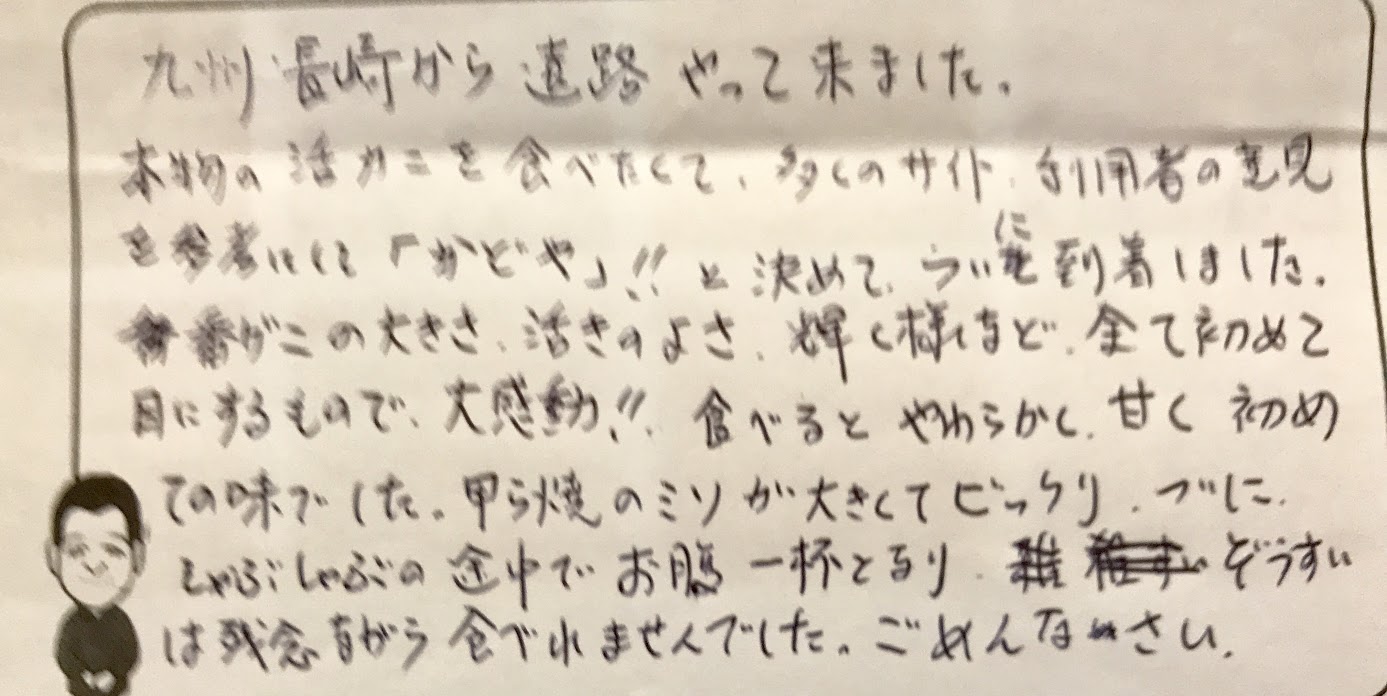 九州 長崎から 遠路 やって来ました。
本物の 活カニを 食べたくて、多くのサイト、利用者の意見
を参考にして 「かどや」!! と 決めて、ついに 到着しました。
番ガニの大きさ、活きのよさ、輝く様など、全て初めて
目にするもので、大感動!! 食べると やわらかく、甘く 初め
ての味でした。甲ら焼のミソが大きくてビックリ。
しゃぶしゃぶの 途中で お腹 一杯となり、 ぞうすい
は残念ながら 食べれませんでした。ごめんなさい。